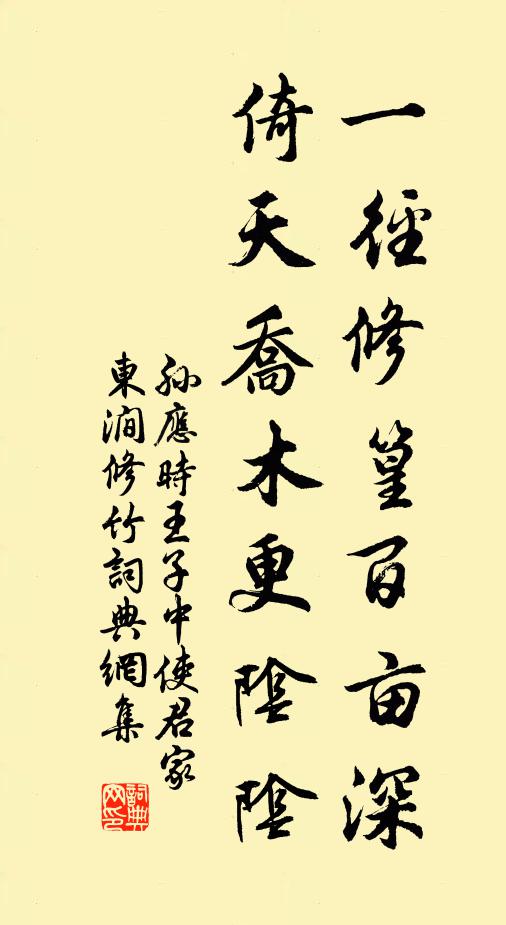 一徑修篁百亩深
倚天喬木更陰陰
孙應時王子中使君家
東澗修竹詞典網集
詞典
网印